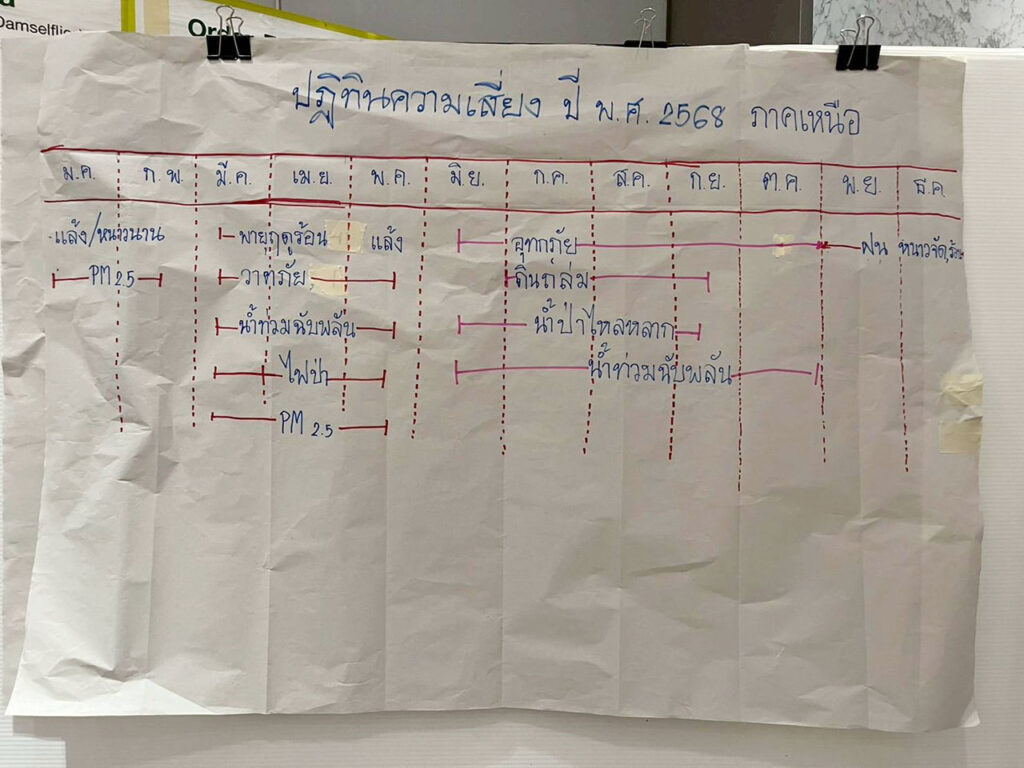 Damselflie
Ord
ปฏิทินความเสี่ยง ปี พ.ศ. 2568 ภาคเหนือ
ม.ค. ก.พ. มี.ค. เม.ย. พ.ค. มิ.ย. ก.ค. ส.ค. ก.ย. ต.ค. พ.ย. ธ.ค.
แล้ง/หนาวนาน พายุฤดูร้อน แล้ง อุทกภัย ฝน หนาวจัด,
PM 2.5 วาตภัย ดินถล่ม
น้ำท่วมฉับพลัน น้ำป่าไหลหลาก
ไฟป่า น้ำท่วมฉับพลัน
PM 2.5